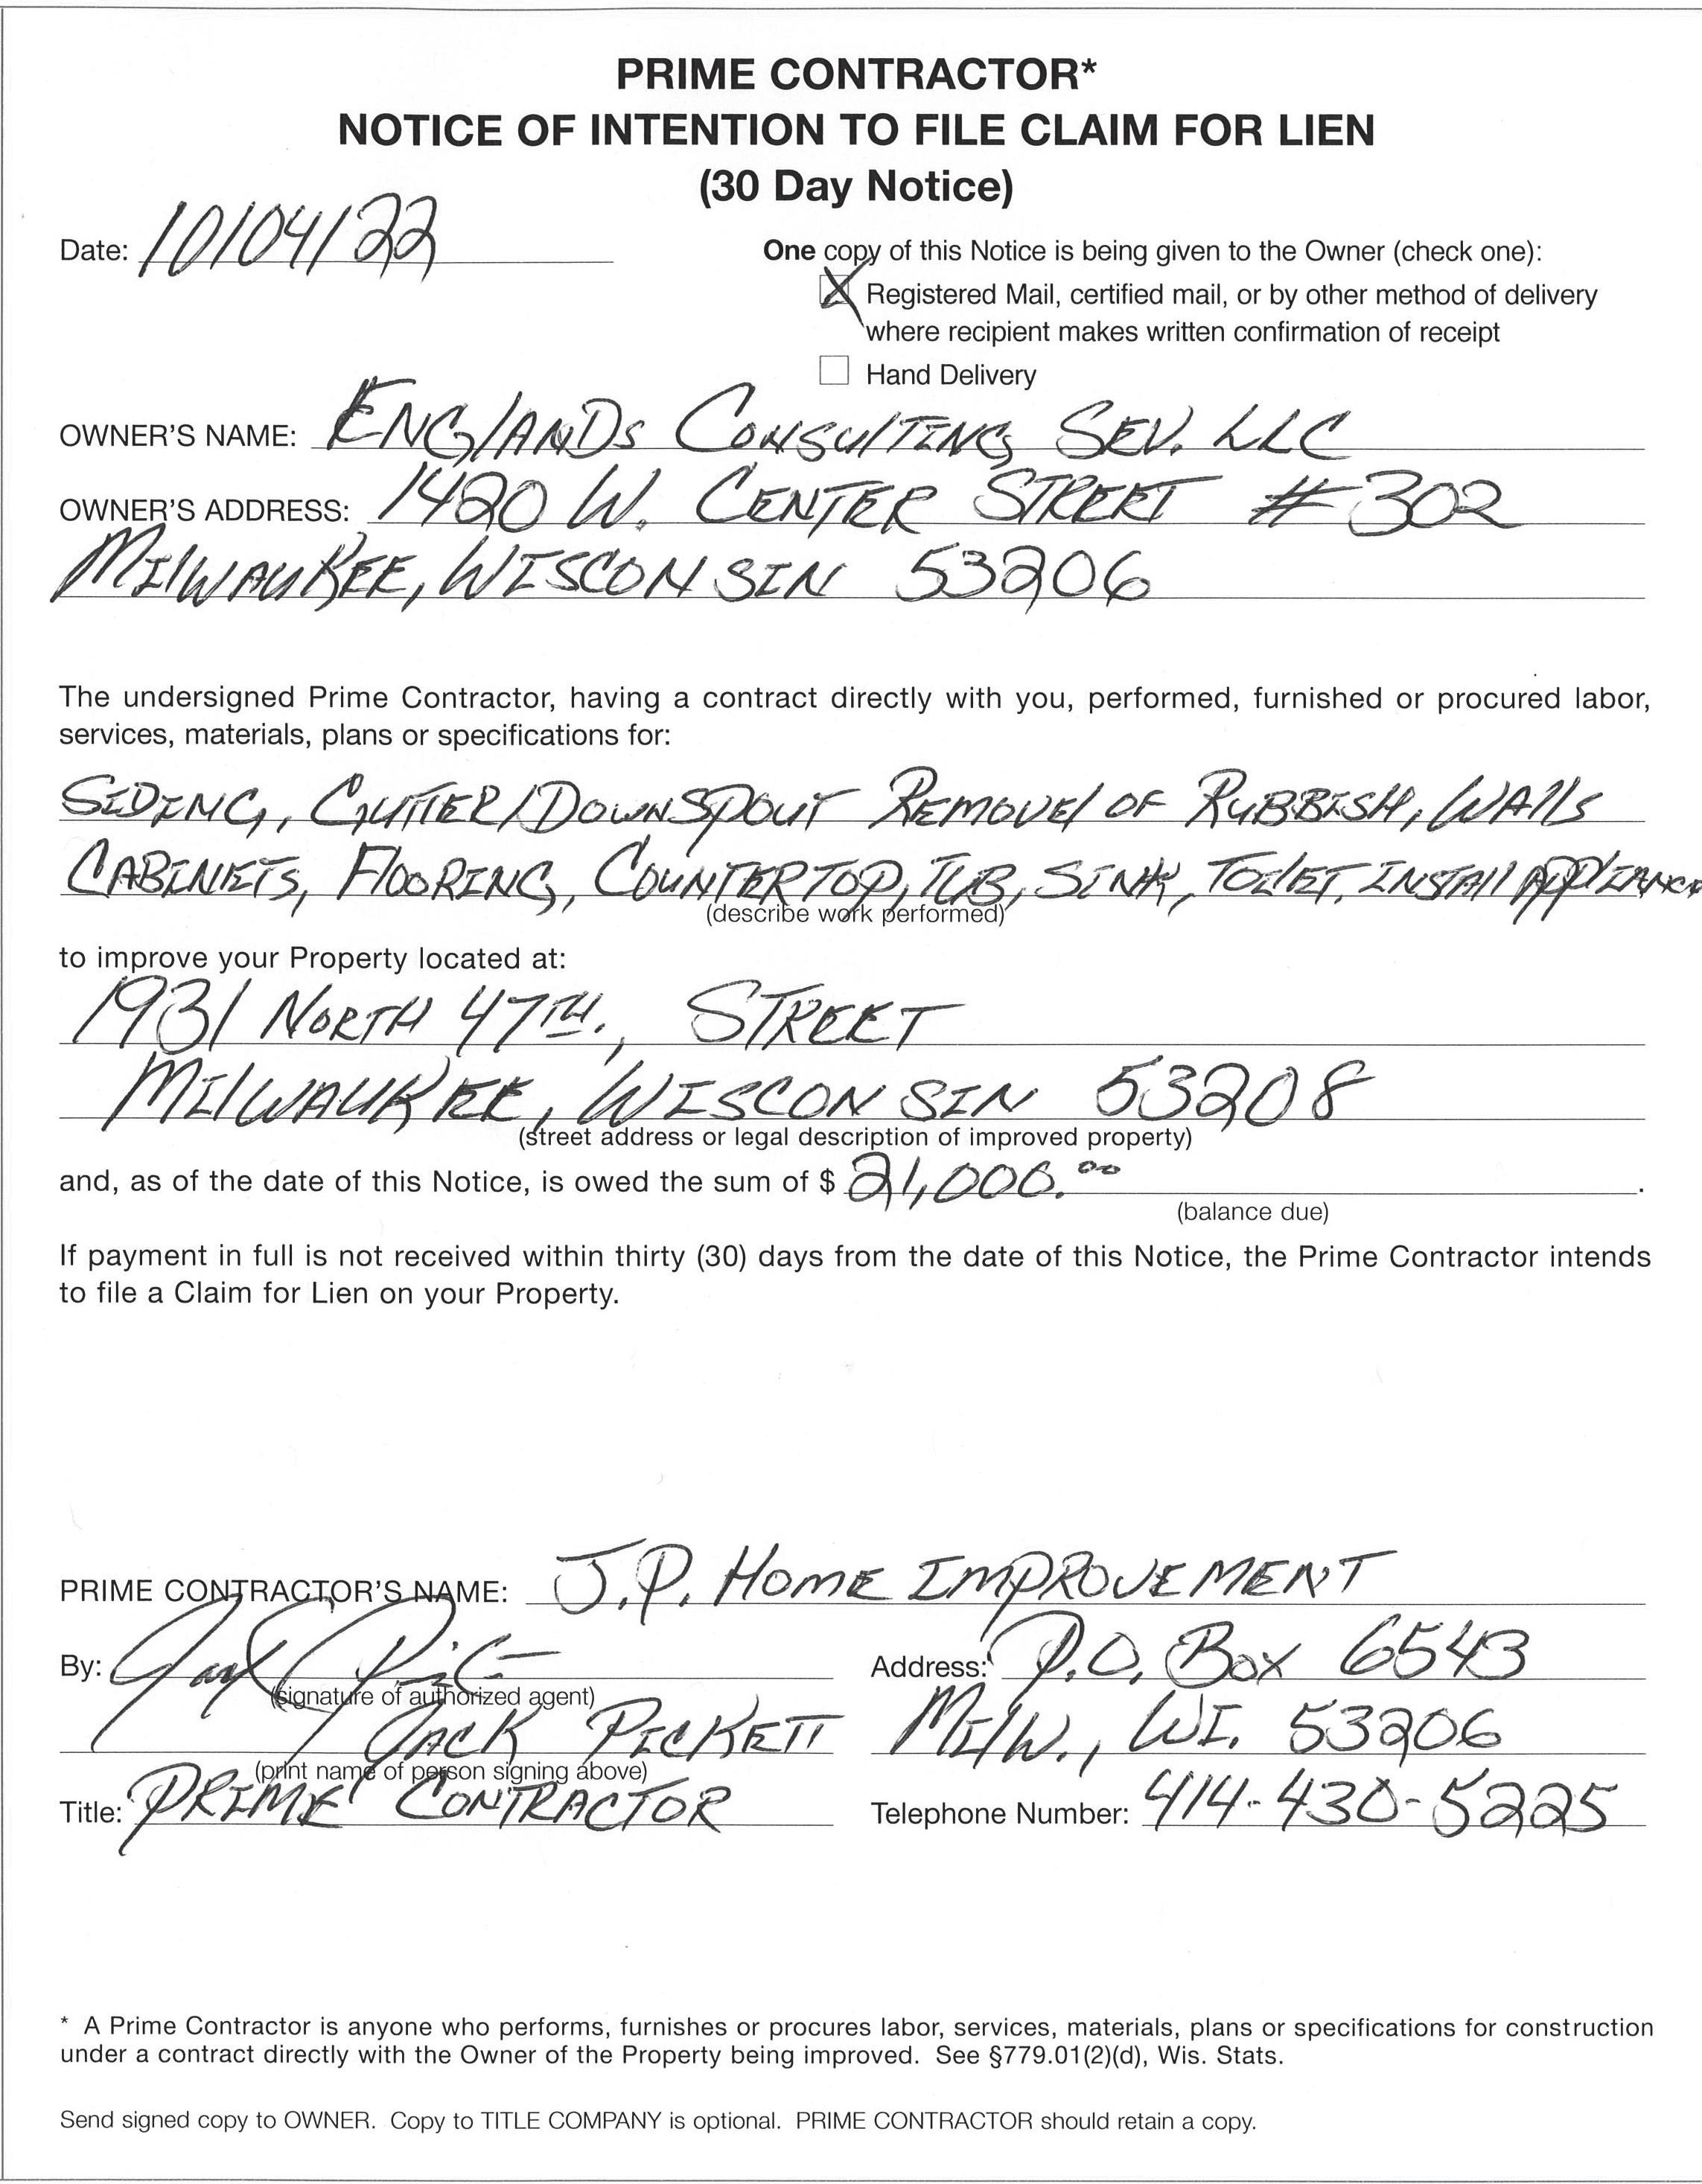 PRIME CONTRACTOR*
NOTICE OF INTENTION TO FILE CLAIM FOR LIEN
(30 Day Notice)
Date: 10/04/22
One copy of this Notice is being given to the Owner (check one):
X Registered Mail, certified mail, or by other method of delivery
where recipient makes written confirmation of receipt
Hand Delivery
OWNER'S NAME: ENGlANDS CONSUlTING SEV. LLC
OWNER'S ADDRESS: 1420 W. CENTER STREET # 302
MILWAUKEE, WISCONSIN 53206
The undersigned Prime Contractor, having a contract directly with you, performed, furnished or procured labor,
services, materials, plans or specifications for:
SIDING, GUTTER/DOWNSPOUT REMOVEl OF RUBBISH, WAllS
CABINETS, FlOORING, COUNTERTOP, TUB, SINK, TOIlET, INSTAll APPLIANCE
(describe work performed)
to improve your Property located at:
1931 NORTH 47TH., STREET
MIlWAUKEE, WISCONSIN 53208
(street address or legal description of improved property)
and, as of the date of this Notice, is owed the sum of $ 21,000.00.
(balance due)
If payment in full is not received within thirty (30) days from the date of this Notice, the Prime Contractor intends
to file a Claim for Lien on your Property.
PRIME CONTRACTOR'S NAME: J.P. HOME IMPROVEMENT
By: Jack Pickett Address: P.O. BOX 6543
(signature of authorized agent)
JACK PICKETT MIlW., WI. 53206
(print name of person signing above)
Title: PRIME CONTRACTOR Telephone Number: 414-430-5225
* A Prime Contractor is anyone who performs, furnishes or procures labor, services, materials, plans or specifications for construction
under a contract directly with the Owner of the Property being improved. See §779.01(2)(d), Wis. Stats.
Send signed copy to OWNER. Copy to TITLE COMPANY is optional. PRIME CONTRACTOR should retain a copy.